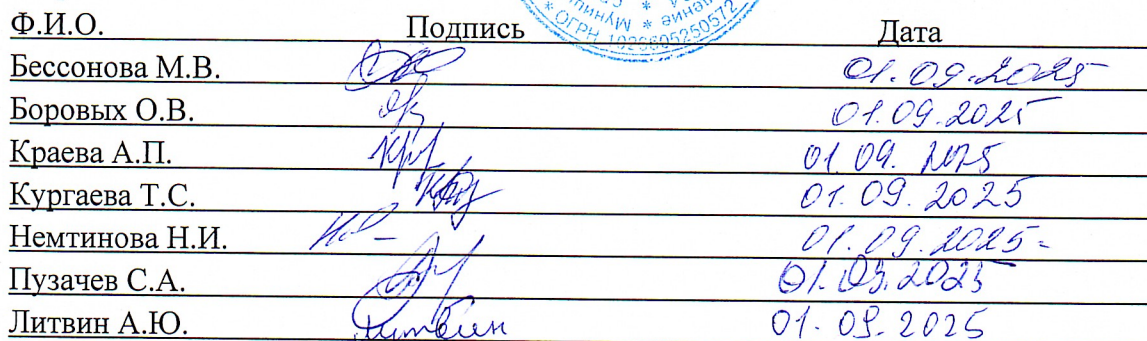 Ф.И.О. Подпись Дата
Бессонова М.В. 01.09.2025
Боровых О.В. 01.09.2025
Краева А.П. 01.09.2025
Кургаева Т.С. 01.09.2025
Немтинова Н.И. 01.09.2025
Пузачев С.А. 01.09.2025
Литвин А.Ю. Литвин 01.09.2025